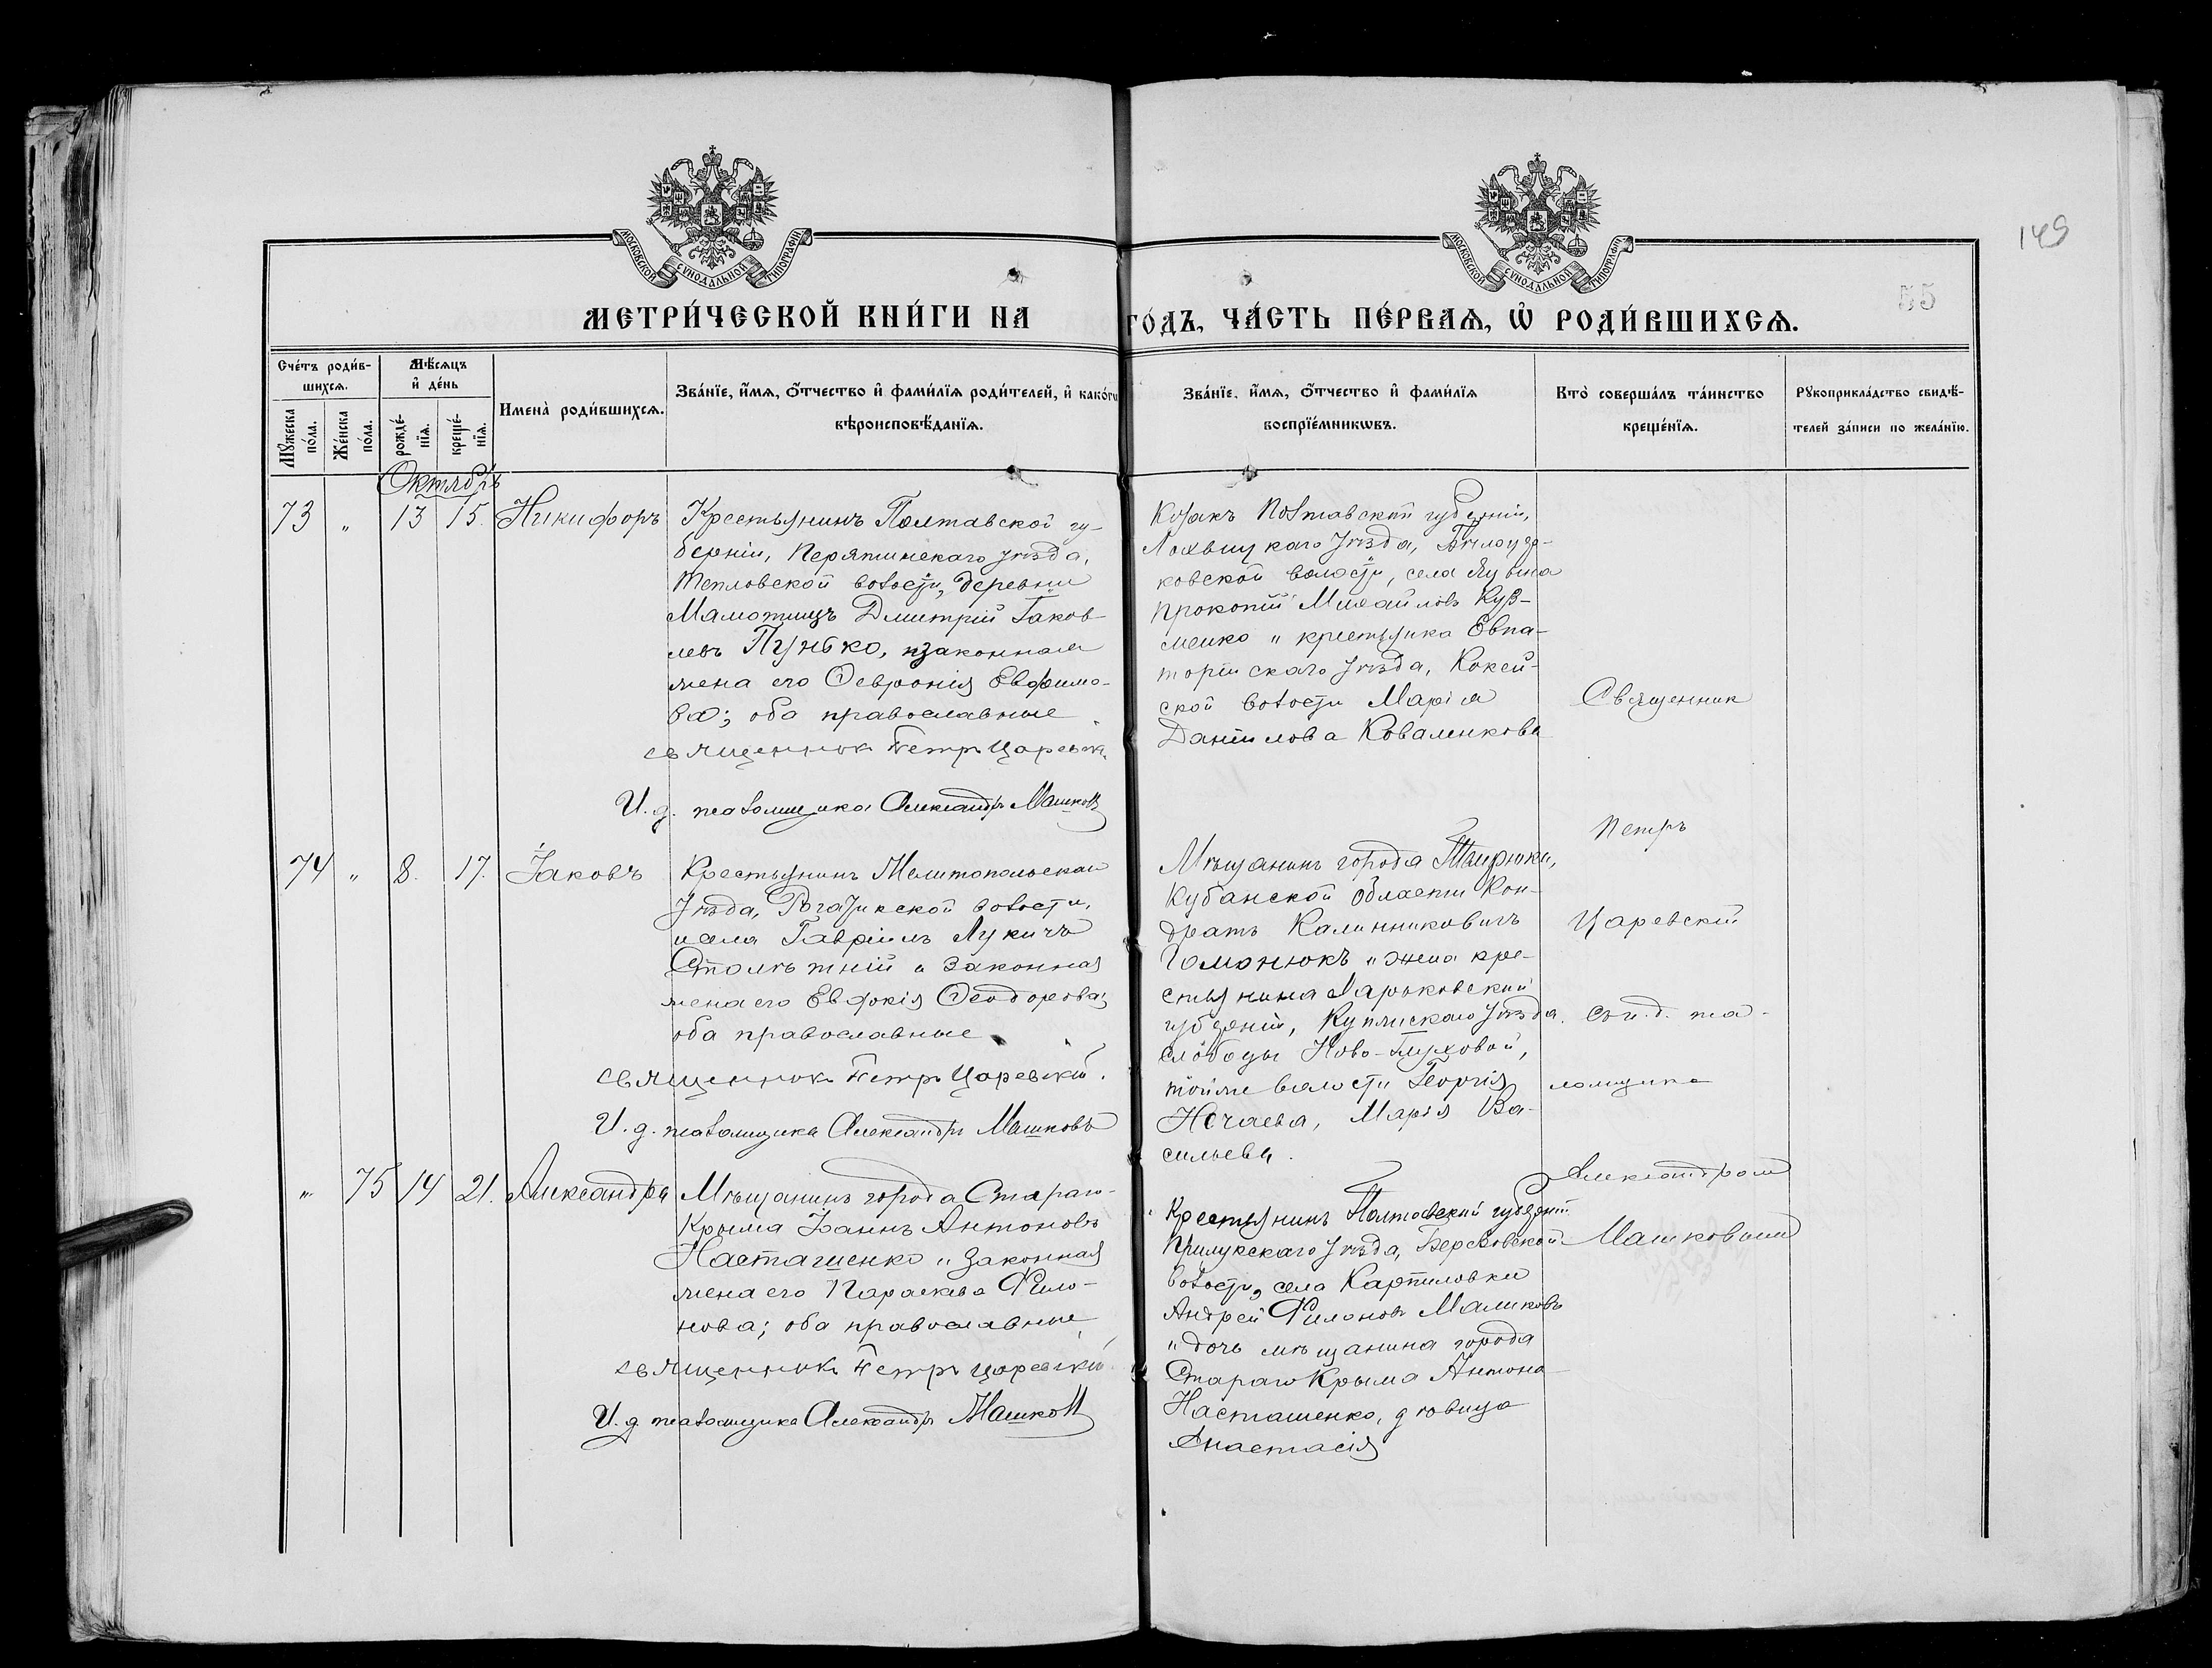 149
55
МОСКОВСКОЙ СѴНОДАЛЬНОЙ ТИПОГРАФІИ
МОСКОВСКОЙ СѴНОДАЛЬНОЙ ТИПОГРАФІИ
МЕТРИ́ЧЕСКОЙ КНИ́ГИ НА ГО́ДЪ, ЧА́СТЬ ПЕ́РВАѦ, Ѡ҆ РОДИ́ВШИХСѦ.
Сче́тъ роди́в-
шихсѧ.
Мꙋ́жеска
по́ла.
Же́нска
по́ла.
Мѣ́сѧцъ
и҆ де́нь
рожде́-
нїѧ.
креще́-
нїѧ.
Имена̀ роди́вшихсѧ.
Зва́нїе, и҆́мѧ, ѻ҆́тчество и҆ фами́лїѧ роди́телей, и҆ како́гѡ
вѣроисповѣ́данїѧ.
Зва́нїе, и҆́мѧ, ѻ҆́тчество и҆ фами́лїѧ
воспрїе́мникѡвъ.
Кто̀ соверша́лъ та́инство
креще́нїѧ.
Рꙋкоприкла́дство свидѣ́-
телей за́писи по жела́нїю.
Октябрь
73 " 13 15. Никифоръ
Крестьянинъ Полтавской гу-
берніи, Пирятинскаго уѣзда,
Тепловской волости, деревни
Мамотицъ Дмитрій Іаков-
левъ Пунько, и законная
жена его Ѳевронія Евфимо-
ва; оба православные
священник Петръ Царевск.
И. д. псаломщика Александръ Машковъ
Козакъ Полтавской губерніи,
Лохвицкаго уѣзда, Бѣлоцер-
ковской волости, села
Прокопій Михайловъ Куз-
менко и крестьянка Евпа-
торійскаго уѣзда, Кокей-
ской волости Марія
Даніилова Коваленкова
74 " 8. 17. Іаковъ
Крестьянинъ Мелитопольскаго
уѣзда, Рогачикской волости,
и села Гавріилъ Лукичъ
Столѣтній и законная
жена его Евдокія Ѳеодорова;
оба православные
священникъ Петръ Царевскій.
И. д. псаломщика Александръ Машковъ
Мѣщанинъ города Темрюка,
Кубанской области Кон-
дратъ Калинниковичъ
Гомонюкъ и жена кре-
стьянина Харьковской
губерніи, Купянскаго уѣзда,
слободы Ново-Глуховой,
той же волости Георгія
Нечаева, Марія Ва-
сильева.
" 75 14 21. Александра
Мѣщанинъ города Стараго-
Крыма Іоаннъ Антоновъ
Насташенко и законная
жена его Параскева Фило-
нова; оба православные
священникъ Петръ Царевскій
И. д. псаломщика Александръ Машковъ
Крестьянинъ Полтавской губерніи
Прилукскаго уѣзда, Березовской
волости, села Карпиловки
Андрей Филоновъ Маликовъ
и дочь мѣщанина города
Стараго Крыма Антона
Насташенко, дѣвица
Анастасія
Священник
Петръ
Царевскій
съ и. д. пса-
ломщика
Александромъ
Машковымъ